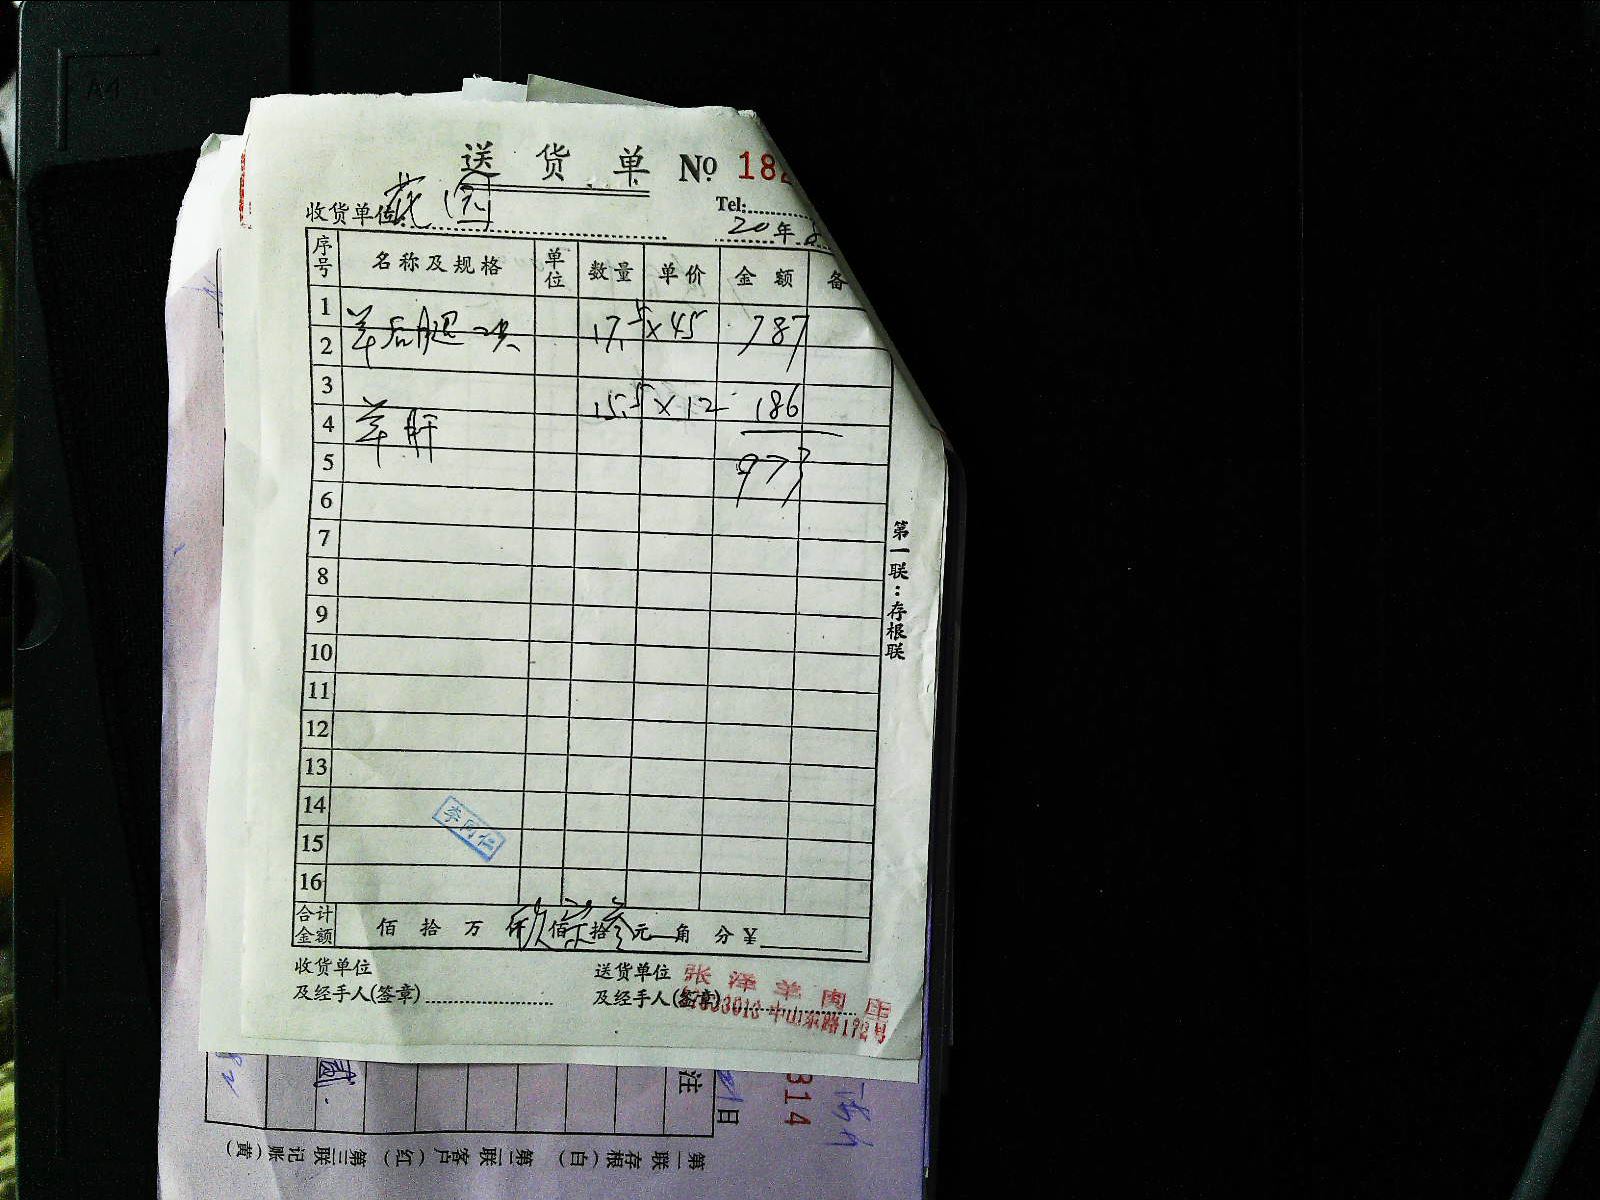 A4
送货单 № 182
收货单位 花园 Tel:
20年8
序号 名称及规格 单位 数量 单价 金额 备
1 羊后腿2只 17.5 × 45 787
2
3 15.5 × 12 186
4 羊肝
5 973
6
7
8
9
10
11
12
13
14
15
16
李同仁
合计金额 佰 拾 万 仟玖佰柒拾叁元 角 分 ¥
收货单位 送货单位 张泽羊肉庄
及经手人(签章) 及经手人(签章) 中山东路172号
第一联:存根联
注
日
314
第一联 存根(白) 第二联 客户(红) 第三联 记账(黄)